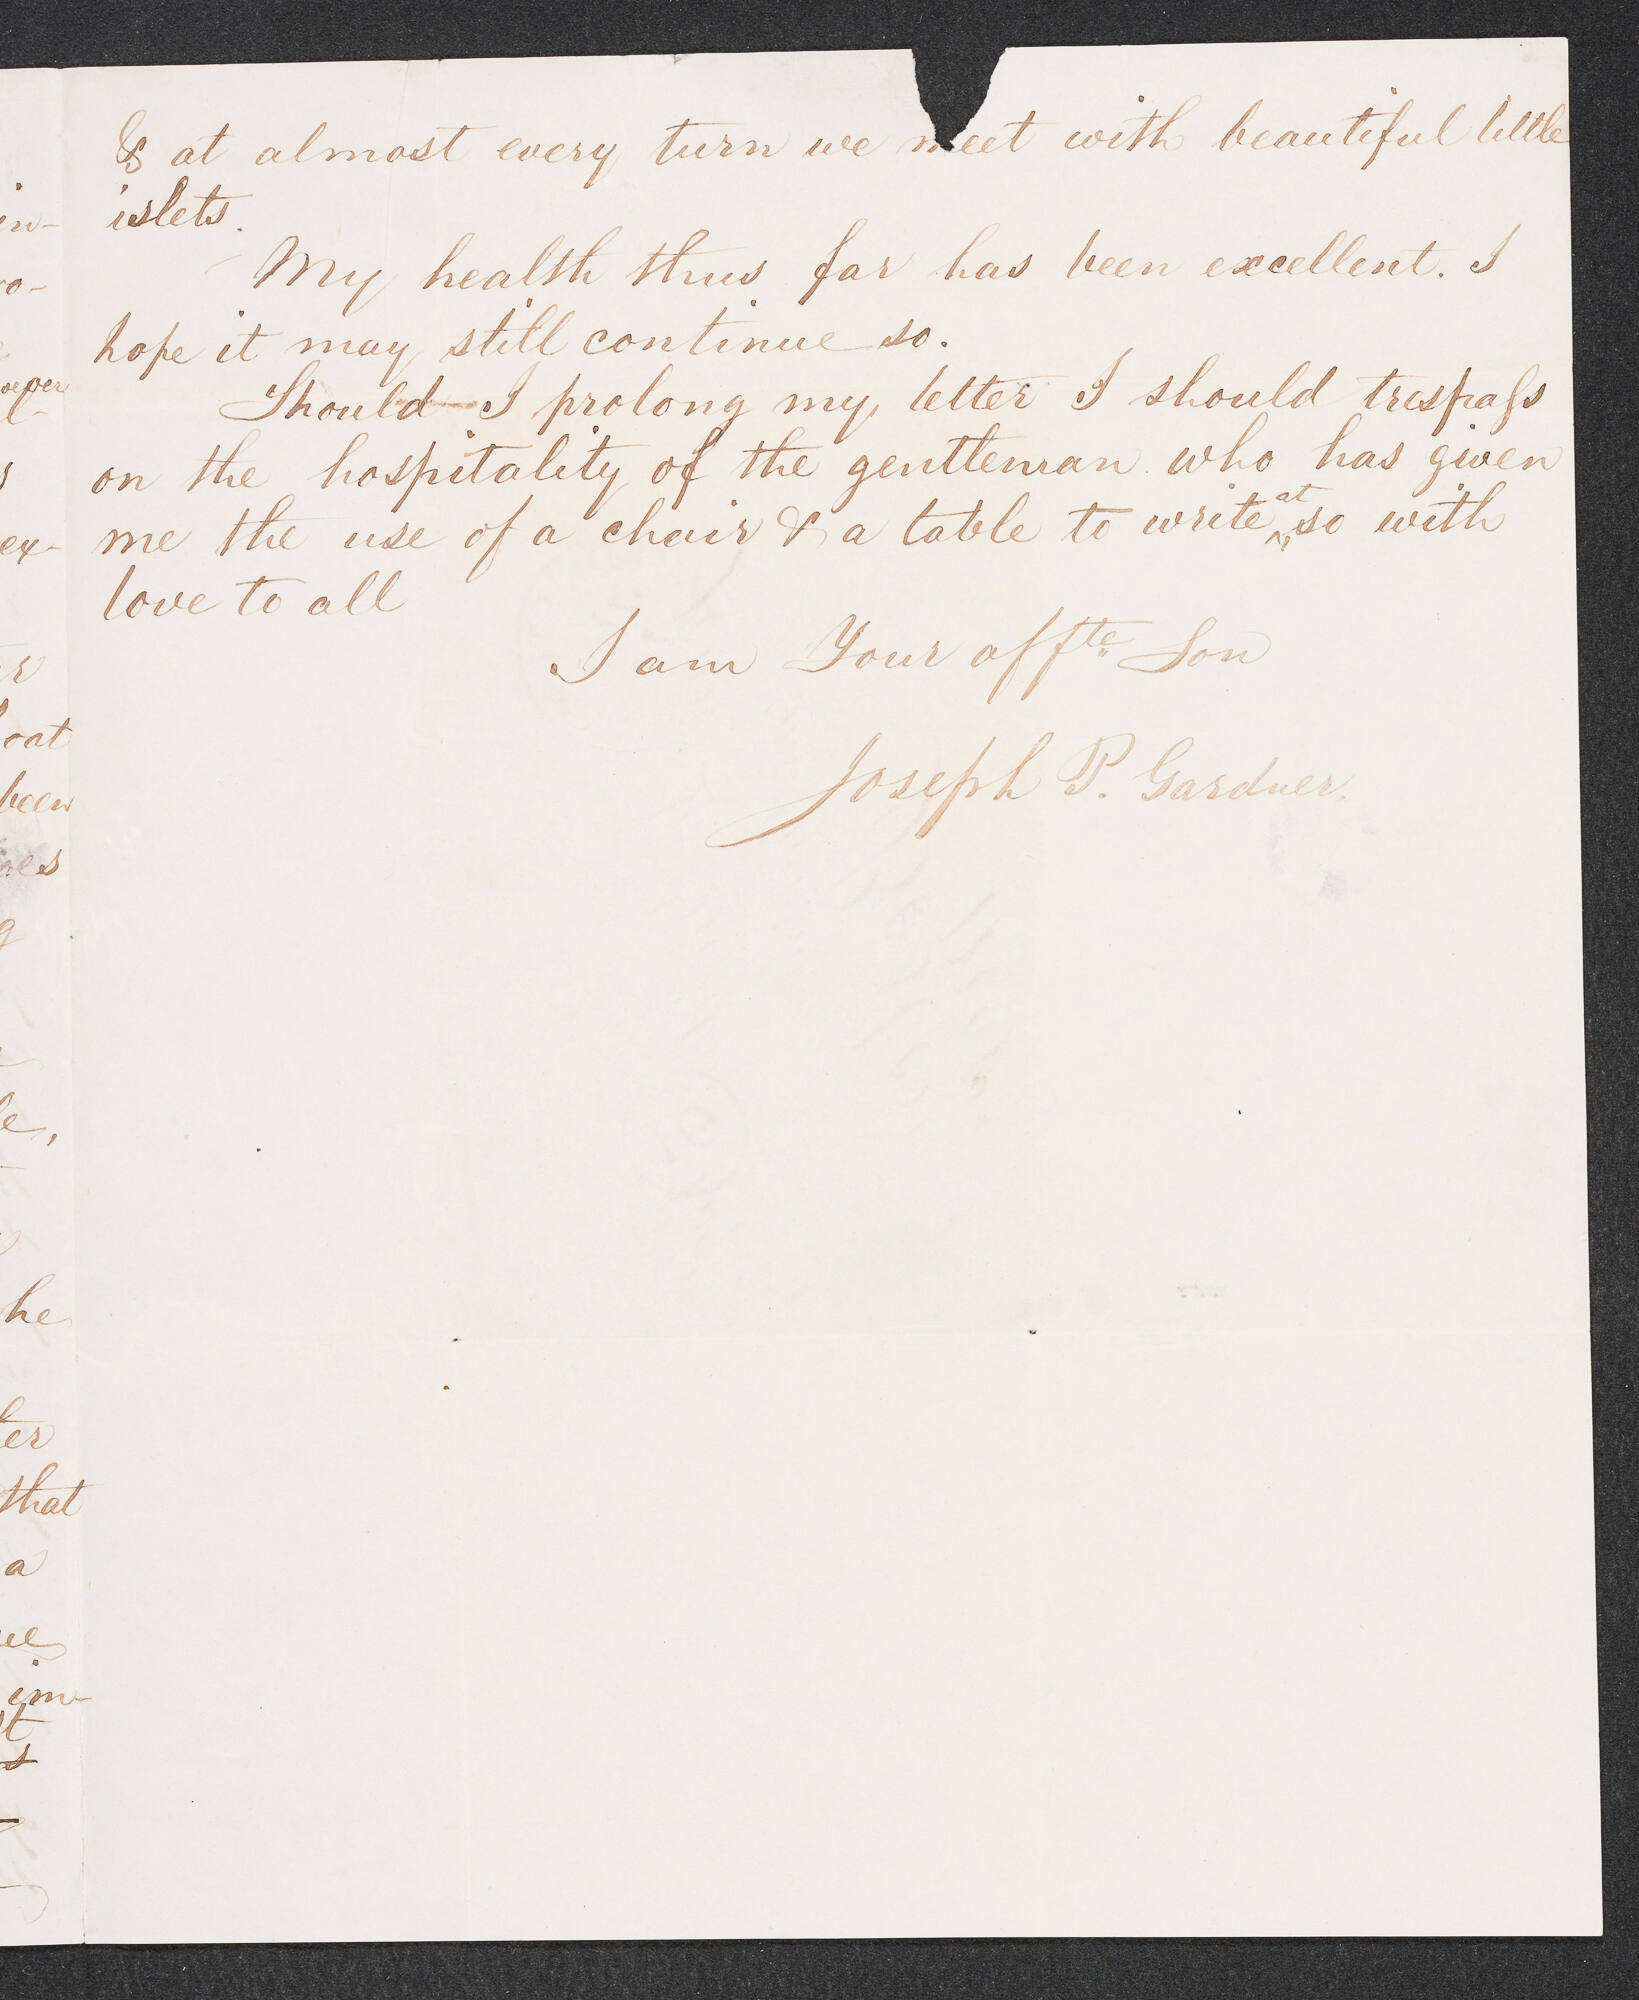 & at almost every turn we meet with beautiful little
islets.
My health thus far has been excellent. I
hope it may still continue so.
Should I prolong my letter I should trespass
on the hospitality of the gentleman who has given
me the use of a chair & a table to write at so with
love to all
I am Your affte Son
Joseph P. Gardner.
in-
ro-
ex-
oat
been
he
ter
that
a
im-